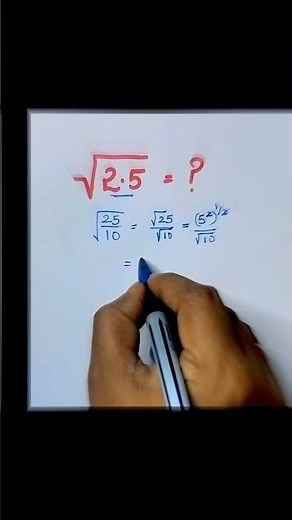 √2.5 = ?
√25/10 = √25/√10 = (5²)^1/2/√10
=